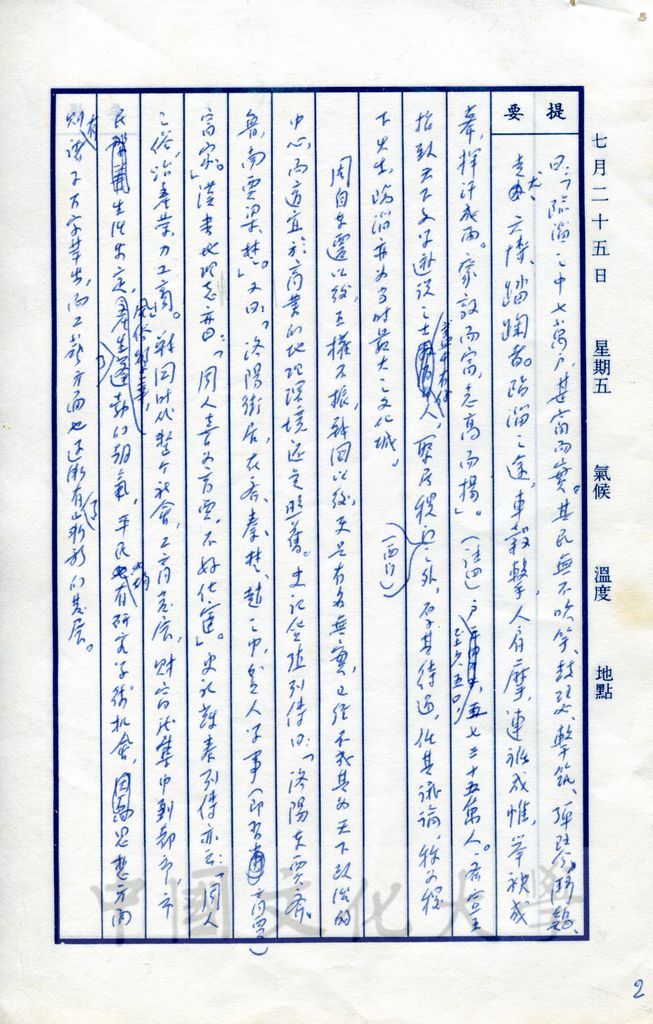 七月二十五日 星期五 氣候 溫度 地點
提要
曰:「臨淄之中七萬戶,甚富而實。其民無不吹竽、鼓瑟、擊筑、彈琴、鬥鷄、
走犬、六博、蹋踘者。臨淄之途,車轂擊,人肩摩,連衽成帷,舉袂成
幕,揮汗成雨。家敦而富,志高而揚」。戶 五七三十五萬人。齊宣王
招致天下文學遊說之士 人,聚居稷 之外,厚其待遇,任其議論,稷
下先生,臨淄亦為當時最大之文化城。
(西門)
周自東遷以後,王權不振,戰國以後,更是有名無實,已經不成其為天下政治的
中心,而適宜於商業的地理環境還是照舊。史記貨殖列傳曰:「洛陽東賈齊、
魯,南賈梁、楚」。又曰:「洛陽街居在齊、秦、楚、趙之中,貧人學事(即習商賈)
富家」。漢書地理志亦曰:「周人善為商賈,不好仕宦」。史記蘇秦列傳亦云:「周人
之俗,治產業力工商。」戰國時代整個社會,工商發展,財富 集中到都市,市
民生活安定, 風俗 產生蓬勃的朝氣,平民也有研究學術機會, 思想方面
則有諸子百家華出,而工藝方面也逐漸有了嶄新的發展。
中國文化大學
2